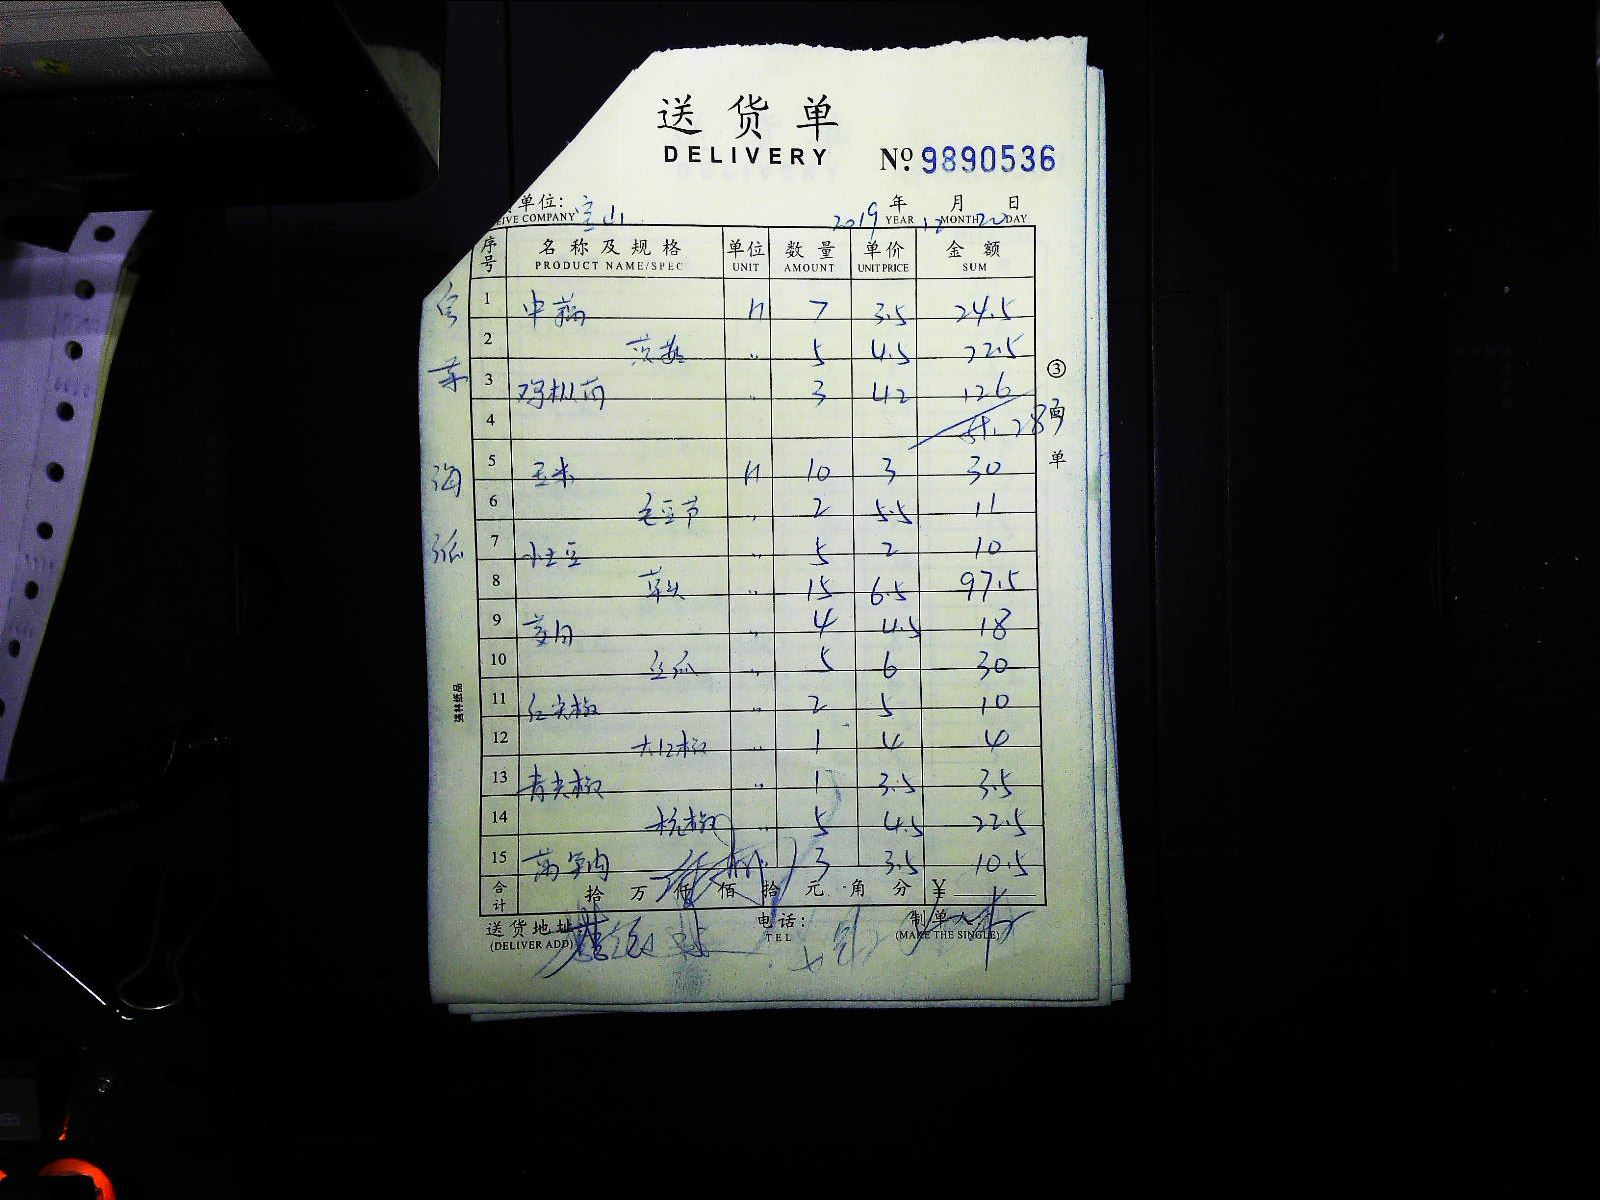 送货单
DELIVERY
No. 9890536
单位: 宝山
COMPANY
2019 年 12 月 20 日
YEAR MONTH DAY
序号 名称及规格 单位 数量 单价 金额
PRODUCT NAME/SPEC UNIT AMOUNT UNIT PRICE SUM
1 中藕 7 3.5 24.5
2 〃 5 4.5 22.5
3 鸡枞菌 〃 3 42 126
4 283
5 玉米 10 3 30
6 毛豆节 〃 2 5.5 11
7 小土豆 〃 5 2 10
8 草头 〃 15 6.5 97.5
9 〃 4 4.5 18
10 丝瓜 〃 5 6 30
11 红尖椒 〃 2 5 10
12 大红椒 〃 1 4 4
13 青尖椒 〃 1 3.5 3.5
14 杭椒 〃 5 4.5 22.5
15 莴笋肉 〃 3 3.5 10.5
合计 拾 万 仟 佰 拾 元 角 分 ¥
送货地址
(DELIVER ADD)
电话:
TEL
制单人
(MAKE THE SINGLE)
③
回单